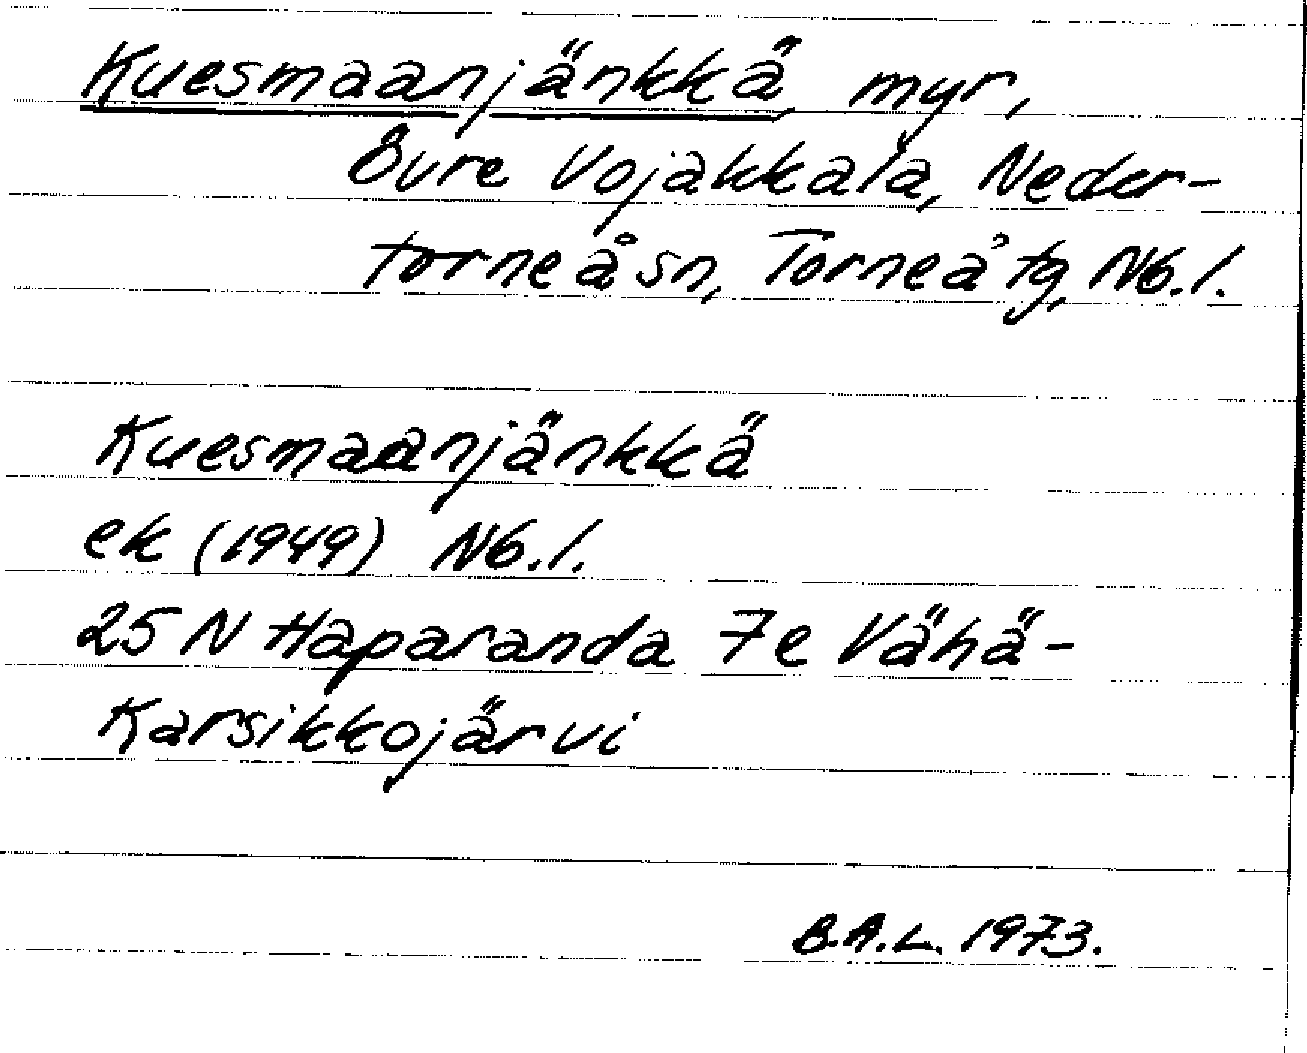 Kuesmaanjänkkä, myr,
Övre Vojakkala, Neder-
torneå sn, Torneå tg, Nb.l.
Kuesmaanjänkkä
ek (1949) Nb.l.
25 N Haparanda 7e Vähä-
Karsikkojärvi
B.A.L. 1973.